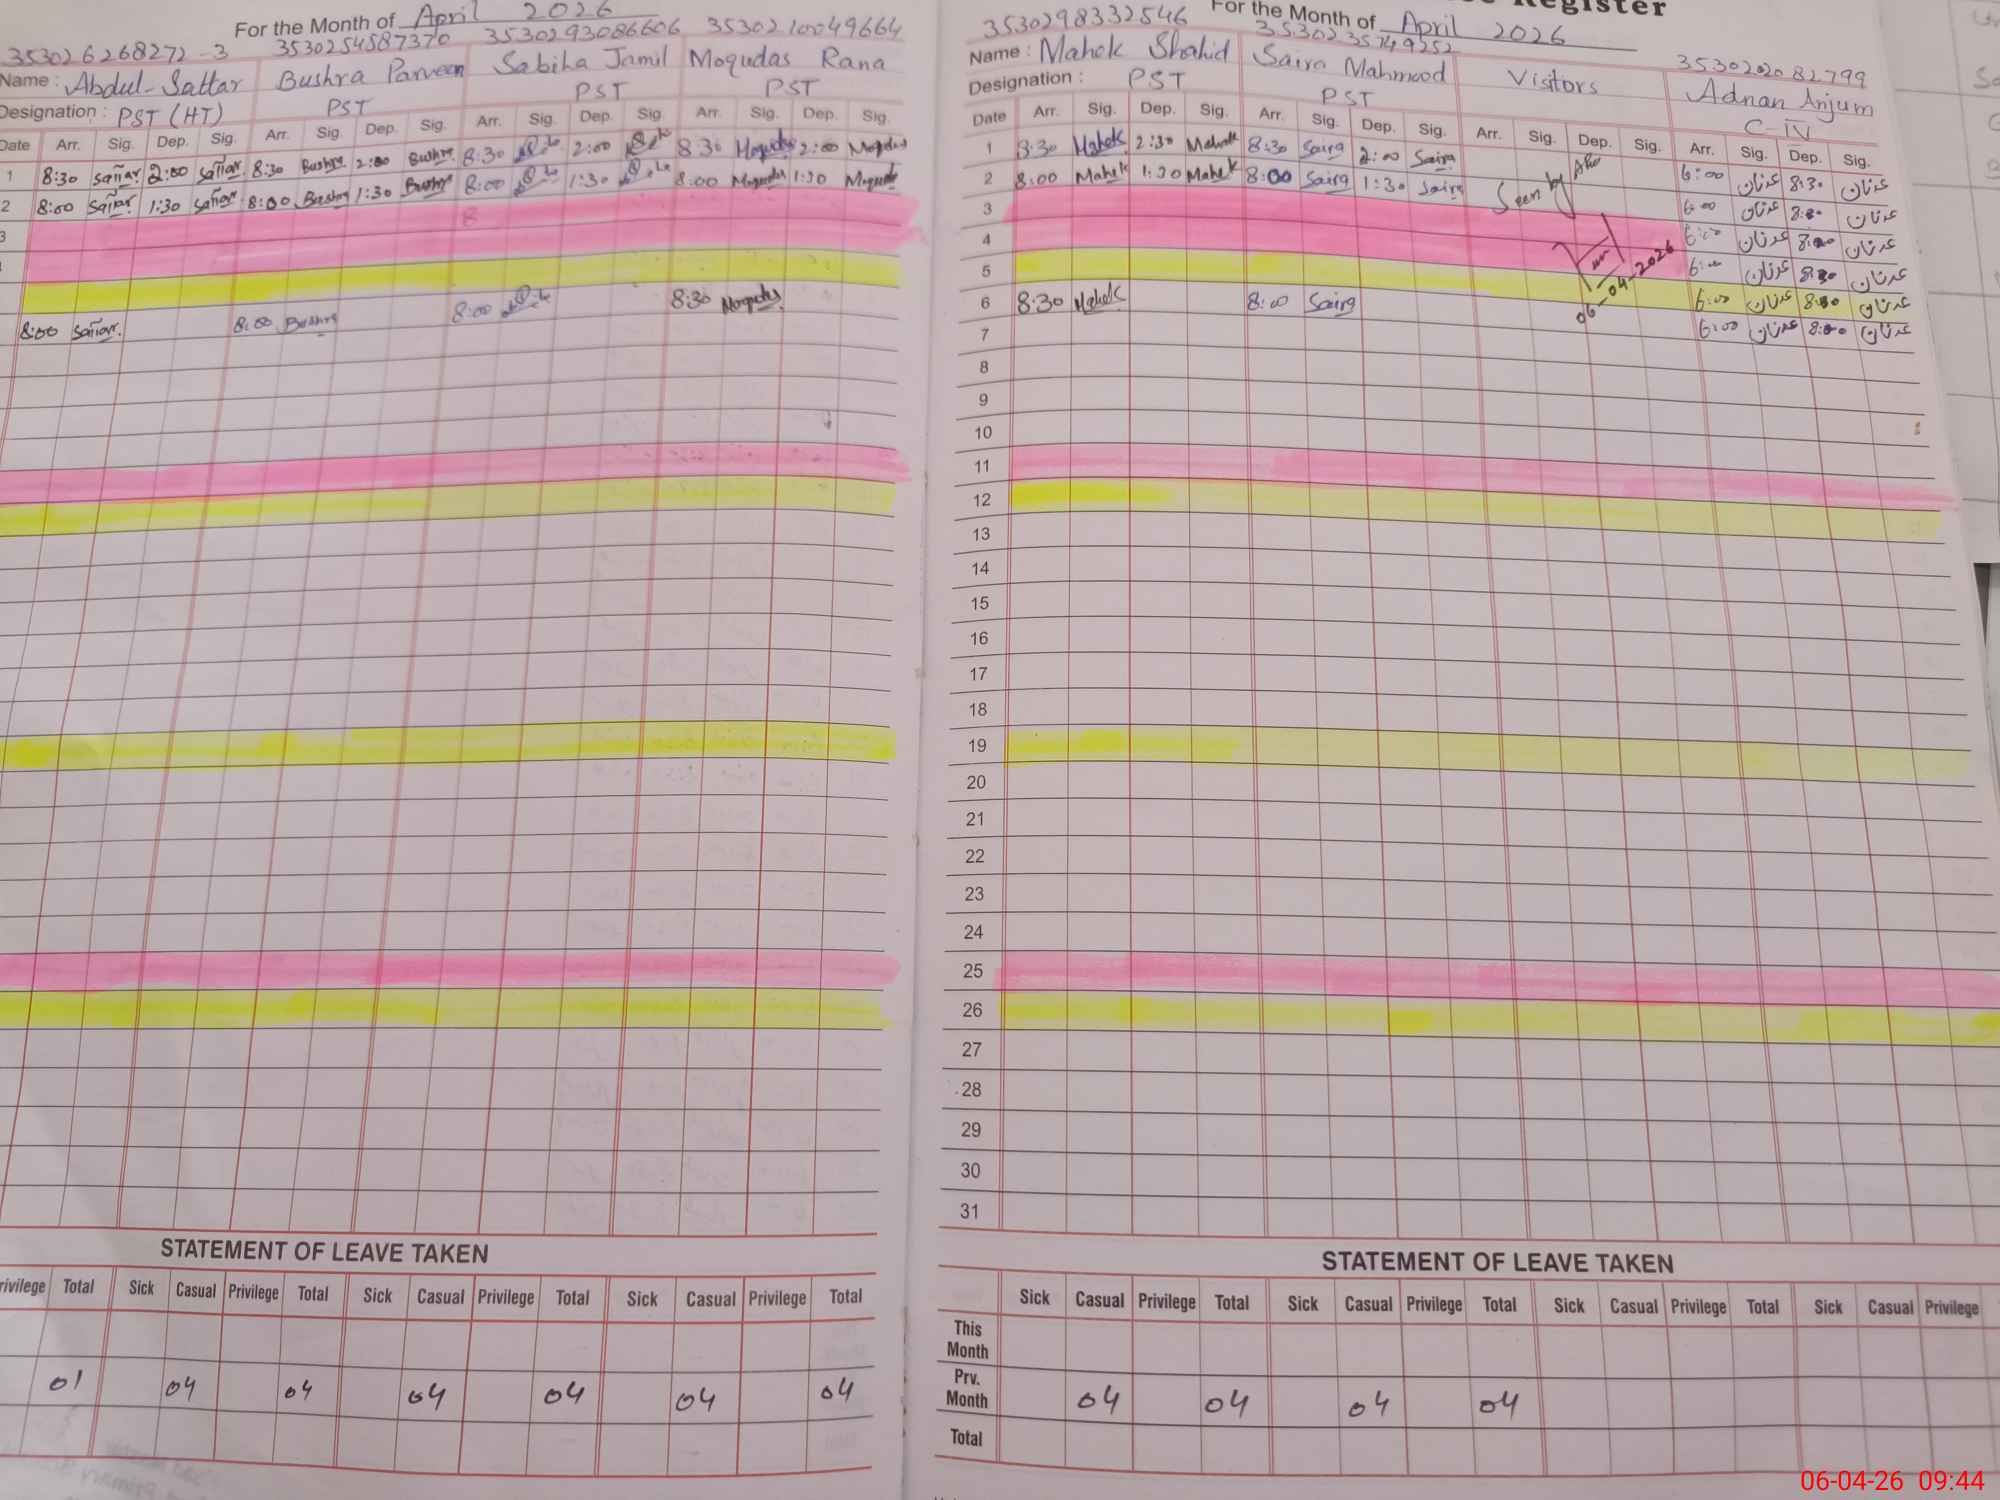 For the Month of April 2026
353026268272-3 3530254587370 3530293086606 3530210049664
Name : Abdul-Sattar Bushra Parveen Sabiha Jamil Moqudas Rana
Designation : PST (HT) PST PST PST
Date Arr. Sig. Dep. Sig. Arr. Sig. Dep. Sig. Arr. Sig. Dep. Sig. Arr. Sig. Dep. Sig.
1 8:30 Sattar 2:00 Sattar 8:30 Bushra 2:00 Bushra 8:30 2:00 8:30 Moqudas 2:00 Moqudas
2 8:00 Sattar 1:30 Sattar 8:00 Bushra 1:30 Bushra 8:00 1:30 8:00 Moqudas 1:30 Moqudas
3
8:00 Sattar. 8:00 Bushra 8:00 8:30 Moqudas
STATEMENT OF LEAVE TAKEN
rivilege Total Sick Casual Privilege Total Sick Casual Privilege Total Sick Casual Privilege Total
01 04 04 04 04 04 04
Register
For the Month of April 2026
3530298332546 3530235749252 3530202082799
Name : Mahek Shahid Saira Mahmood Visitors Adnan Anjum
Designation : PST PST C-IV
Date Arr. Sig. Dep. Sig. Arr. Sig. Dep. Sig. Arr. Sig. Dep. Sig. Arr. Sig. Dep. Sig.
1 8:30 Mahek 2:30 Mahek 8:30 Saira 2:00 Saira 6:00 عدنان 8:30 عدنان
2 8:00 Mahek 1:30 Mahek 8:00 Saira 1:30 Saira Seen by 6:00 عدنان 8:00 عدنان
3 6:00 عدنان 8:00 عدنان
4 6:00 عدنان 8:30 عدنان
5 06-04-2026 6:00 عدنان عدنان
6 8:30 Mahek 8:00 Saira 6:00 عدنان 8:00 عدنان
7
8
9
10
11
12
13
14
15
16
17
18
19
20
21
22
23
24
25
26
27
28
29
30
31
STATEMENT OF LEAVE TAKEN
Sick Casual Privilege Total Sick Casual Privilege Total Sick Casual Privilege Total Sick Casual Privilege
This Month
Prv. Month 04 04 04 04
Total
06-04-26 09:44